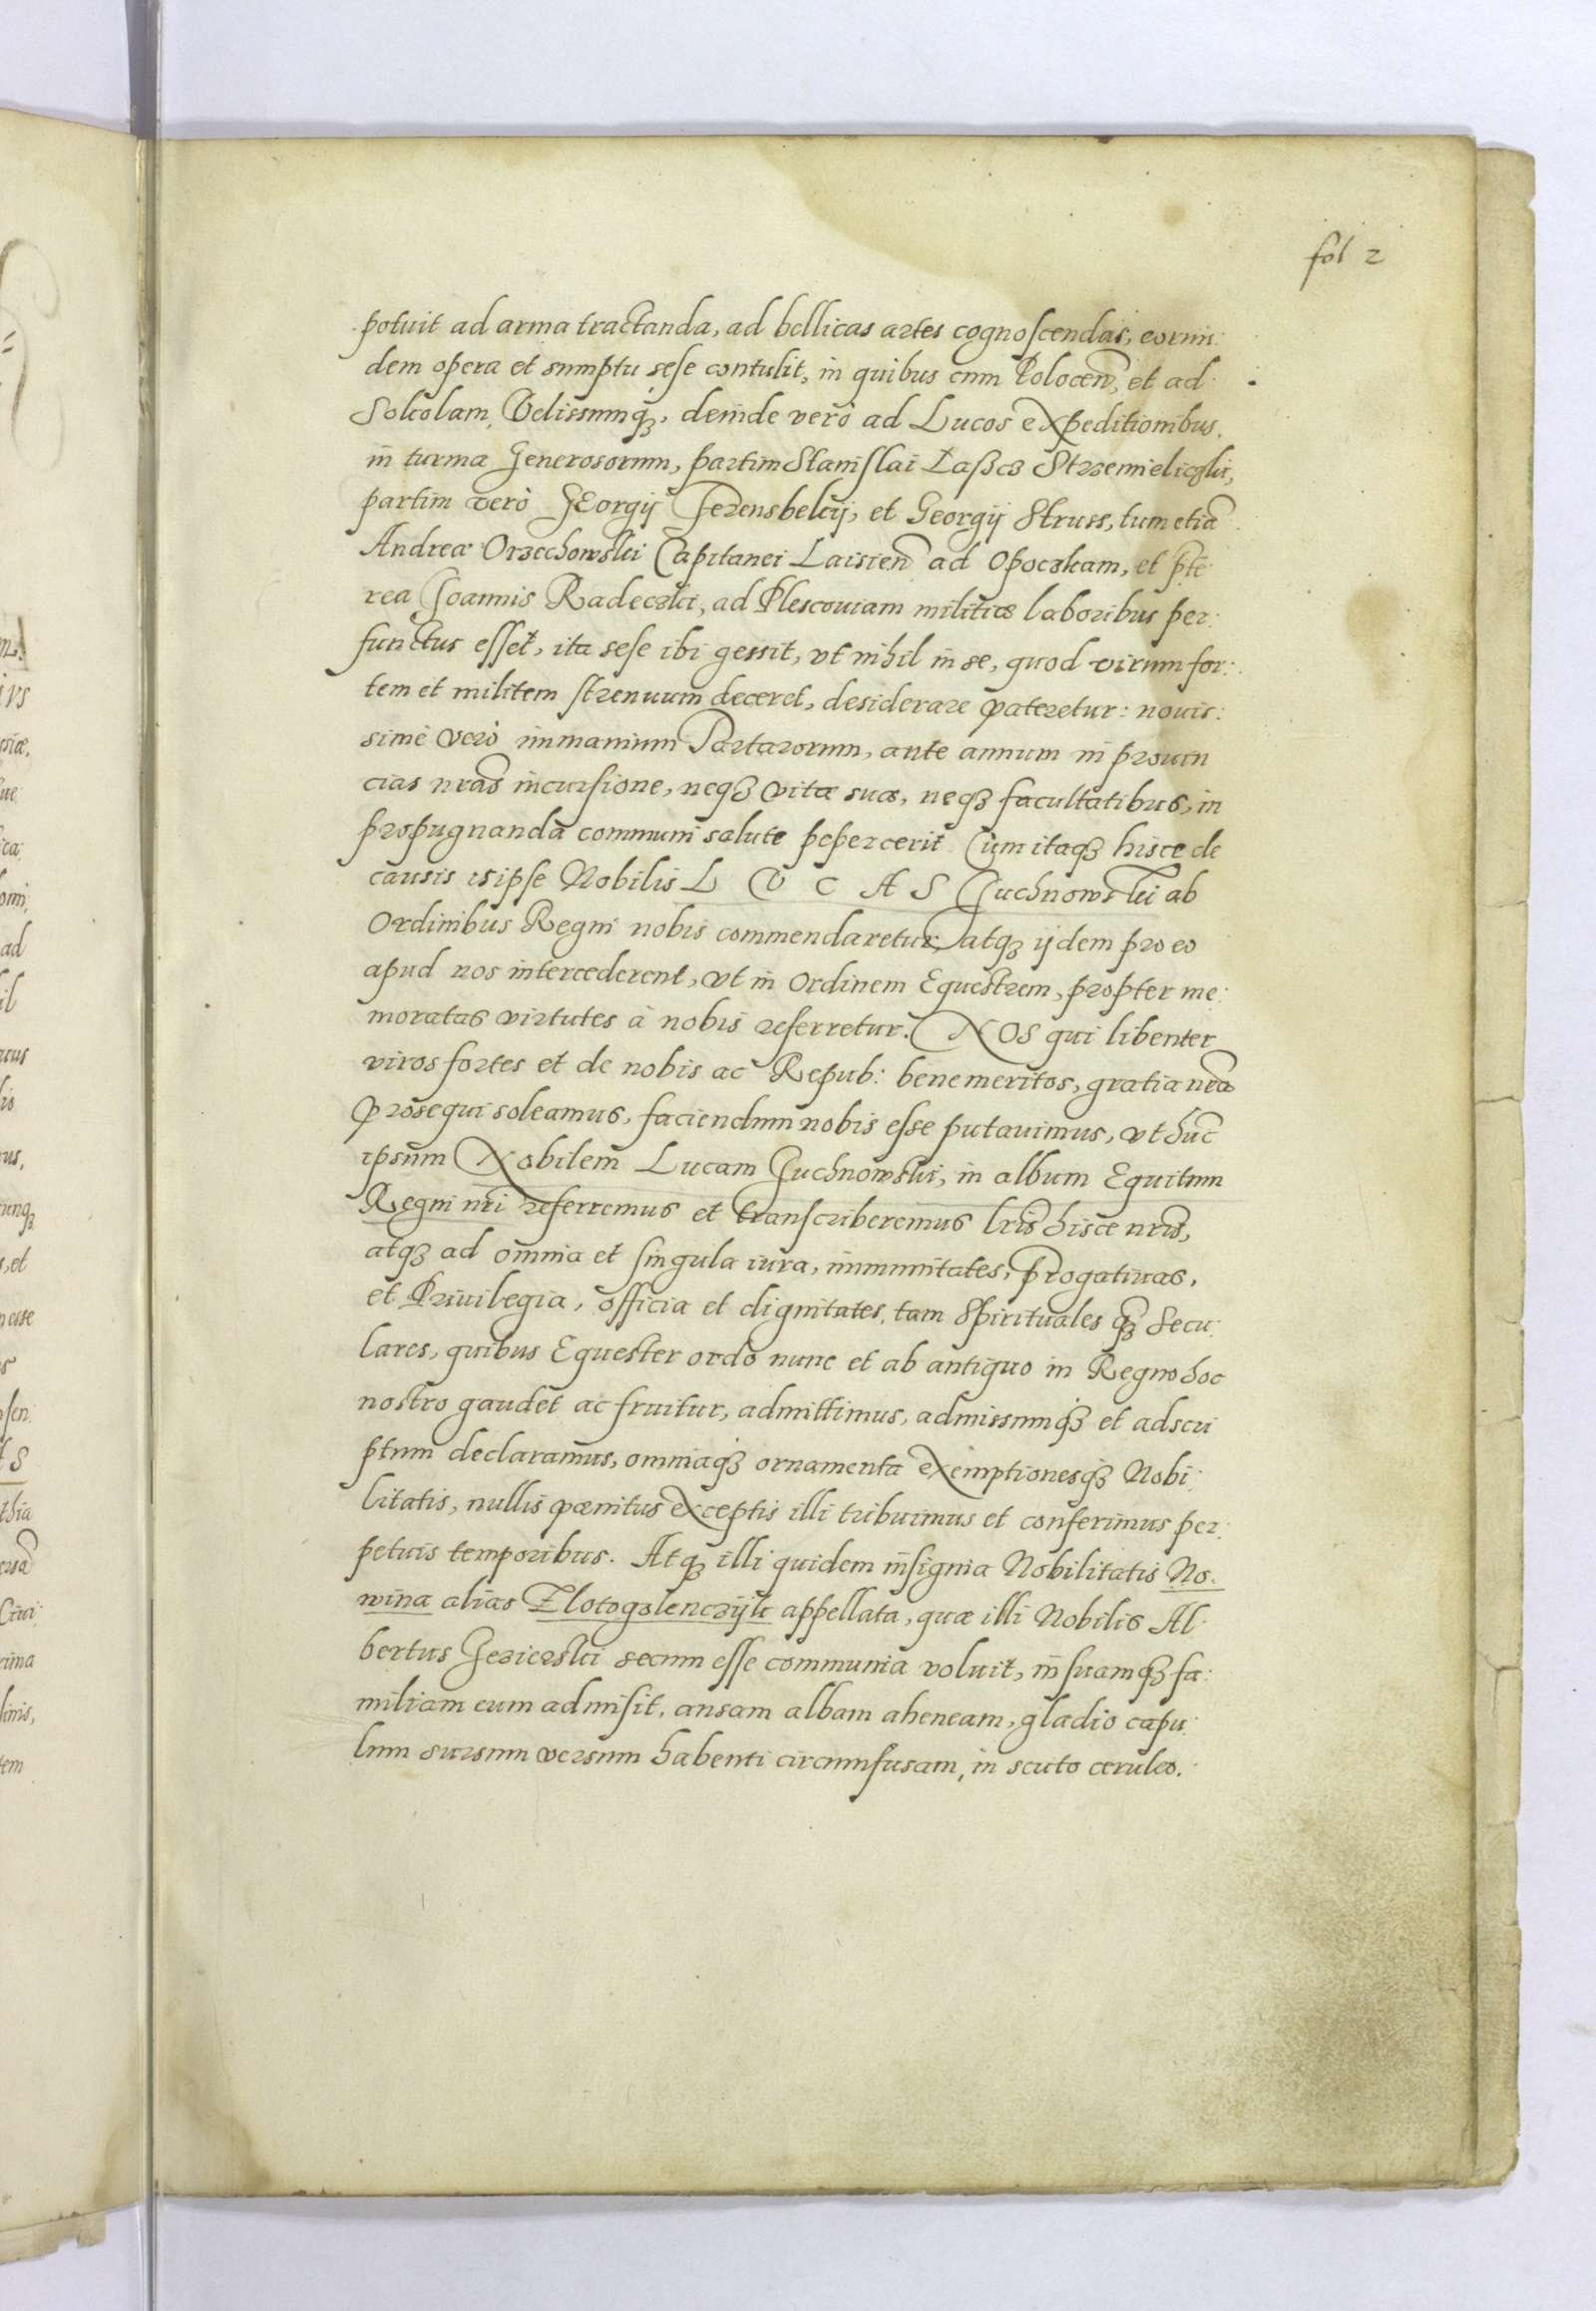 fol 2
potuit ad arma tractanda, ad bellicas artes cognoscendas, eorun:
dem opera et sumptu sese contulit, in quibus cum Polocen̄, et ad
Sokolam, Velissumq́ꝫ, deinde verò ad Lucos expeditionibus,
in turma Generosorum, partim Stanislai Łaßcz Strzemieliczki,
partim verò GEorgij Ferensbekij, et Georgij Struss, tum etiā
Andreæ Orzechowski Capitanei Laisien̄ ad Opoczkam, et p̄te
rea Joannis Radeczki, ad Plescouiam militiæ laboribus per:
functus esset, ita sese ibi gessit, vt nihil in se, quod virum for:
tem et militem strenuum deceret, desiderare pateretur: nouis:
simè verò immanium Tartarorum, ante annum in prouin
cias nr̄as incursione, neqꝫ vitæ suæ, neqꝫ facultatibus, in
propugnanda communi salute pepercerit Cùm itaqꝫ hisce de
causis is ipse Nobilis L V C A S Juchnowski ab
Ordinibus Regni nobis commendaretur, atqꝫ ijdem pro eo
apud nos intercederent, vt in Ordinem Equestrem, propter me:
moratas virtutes à nobis referretur. NOS qui libenter
viros fortes et de nobis ac Repub: benemeritos, gratia nr̄a
prosequi soleamus, faciendum nobis esse putauimus, vt hūc
ipsum Nobilem Lucam Juchnowski, in album Equitum
Regni nr̄i referremus et transcriberemus lr̄is hisce nr̄is,
atqꝫ ad omnia et singula iura, immunitates, p̄rogatiuas,
et Priuilegia, officia et dignitates, tam Spirituales qꝫ̄ Secu:
lares, quibus Equester ordo nunc et ab antiquo in Regno hoc
nostro gaudet ac fruitur, admittimus, admissumq́ꝫ et adscri
ptum declaramus, omniaq́ꝫ ornamenta exemptionesq́ꝫ Nobi:
litatis, nullis pænitus exceptis illi tribuimus et conferimus per:
petuis temporibus. Atqꝫ illi quidem insignia Nobilitatis No:
wina aliàs Zlotogolenczijk appellata, quæ illi Nobilis Al:
bertus Jezierski secum esse communia voluit, in suamq́ꝫ fa:
miliam eum admisit, ansam albam aheneam, gladio capu:
lum sursum versum habenti circumfusam, in scuto ceruleo.